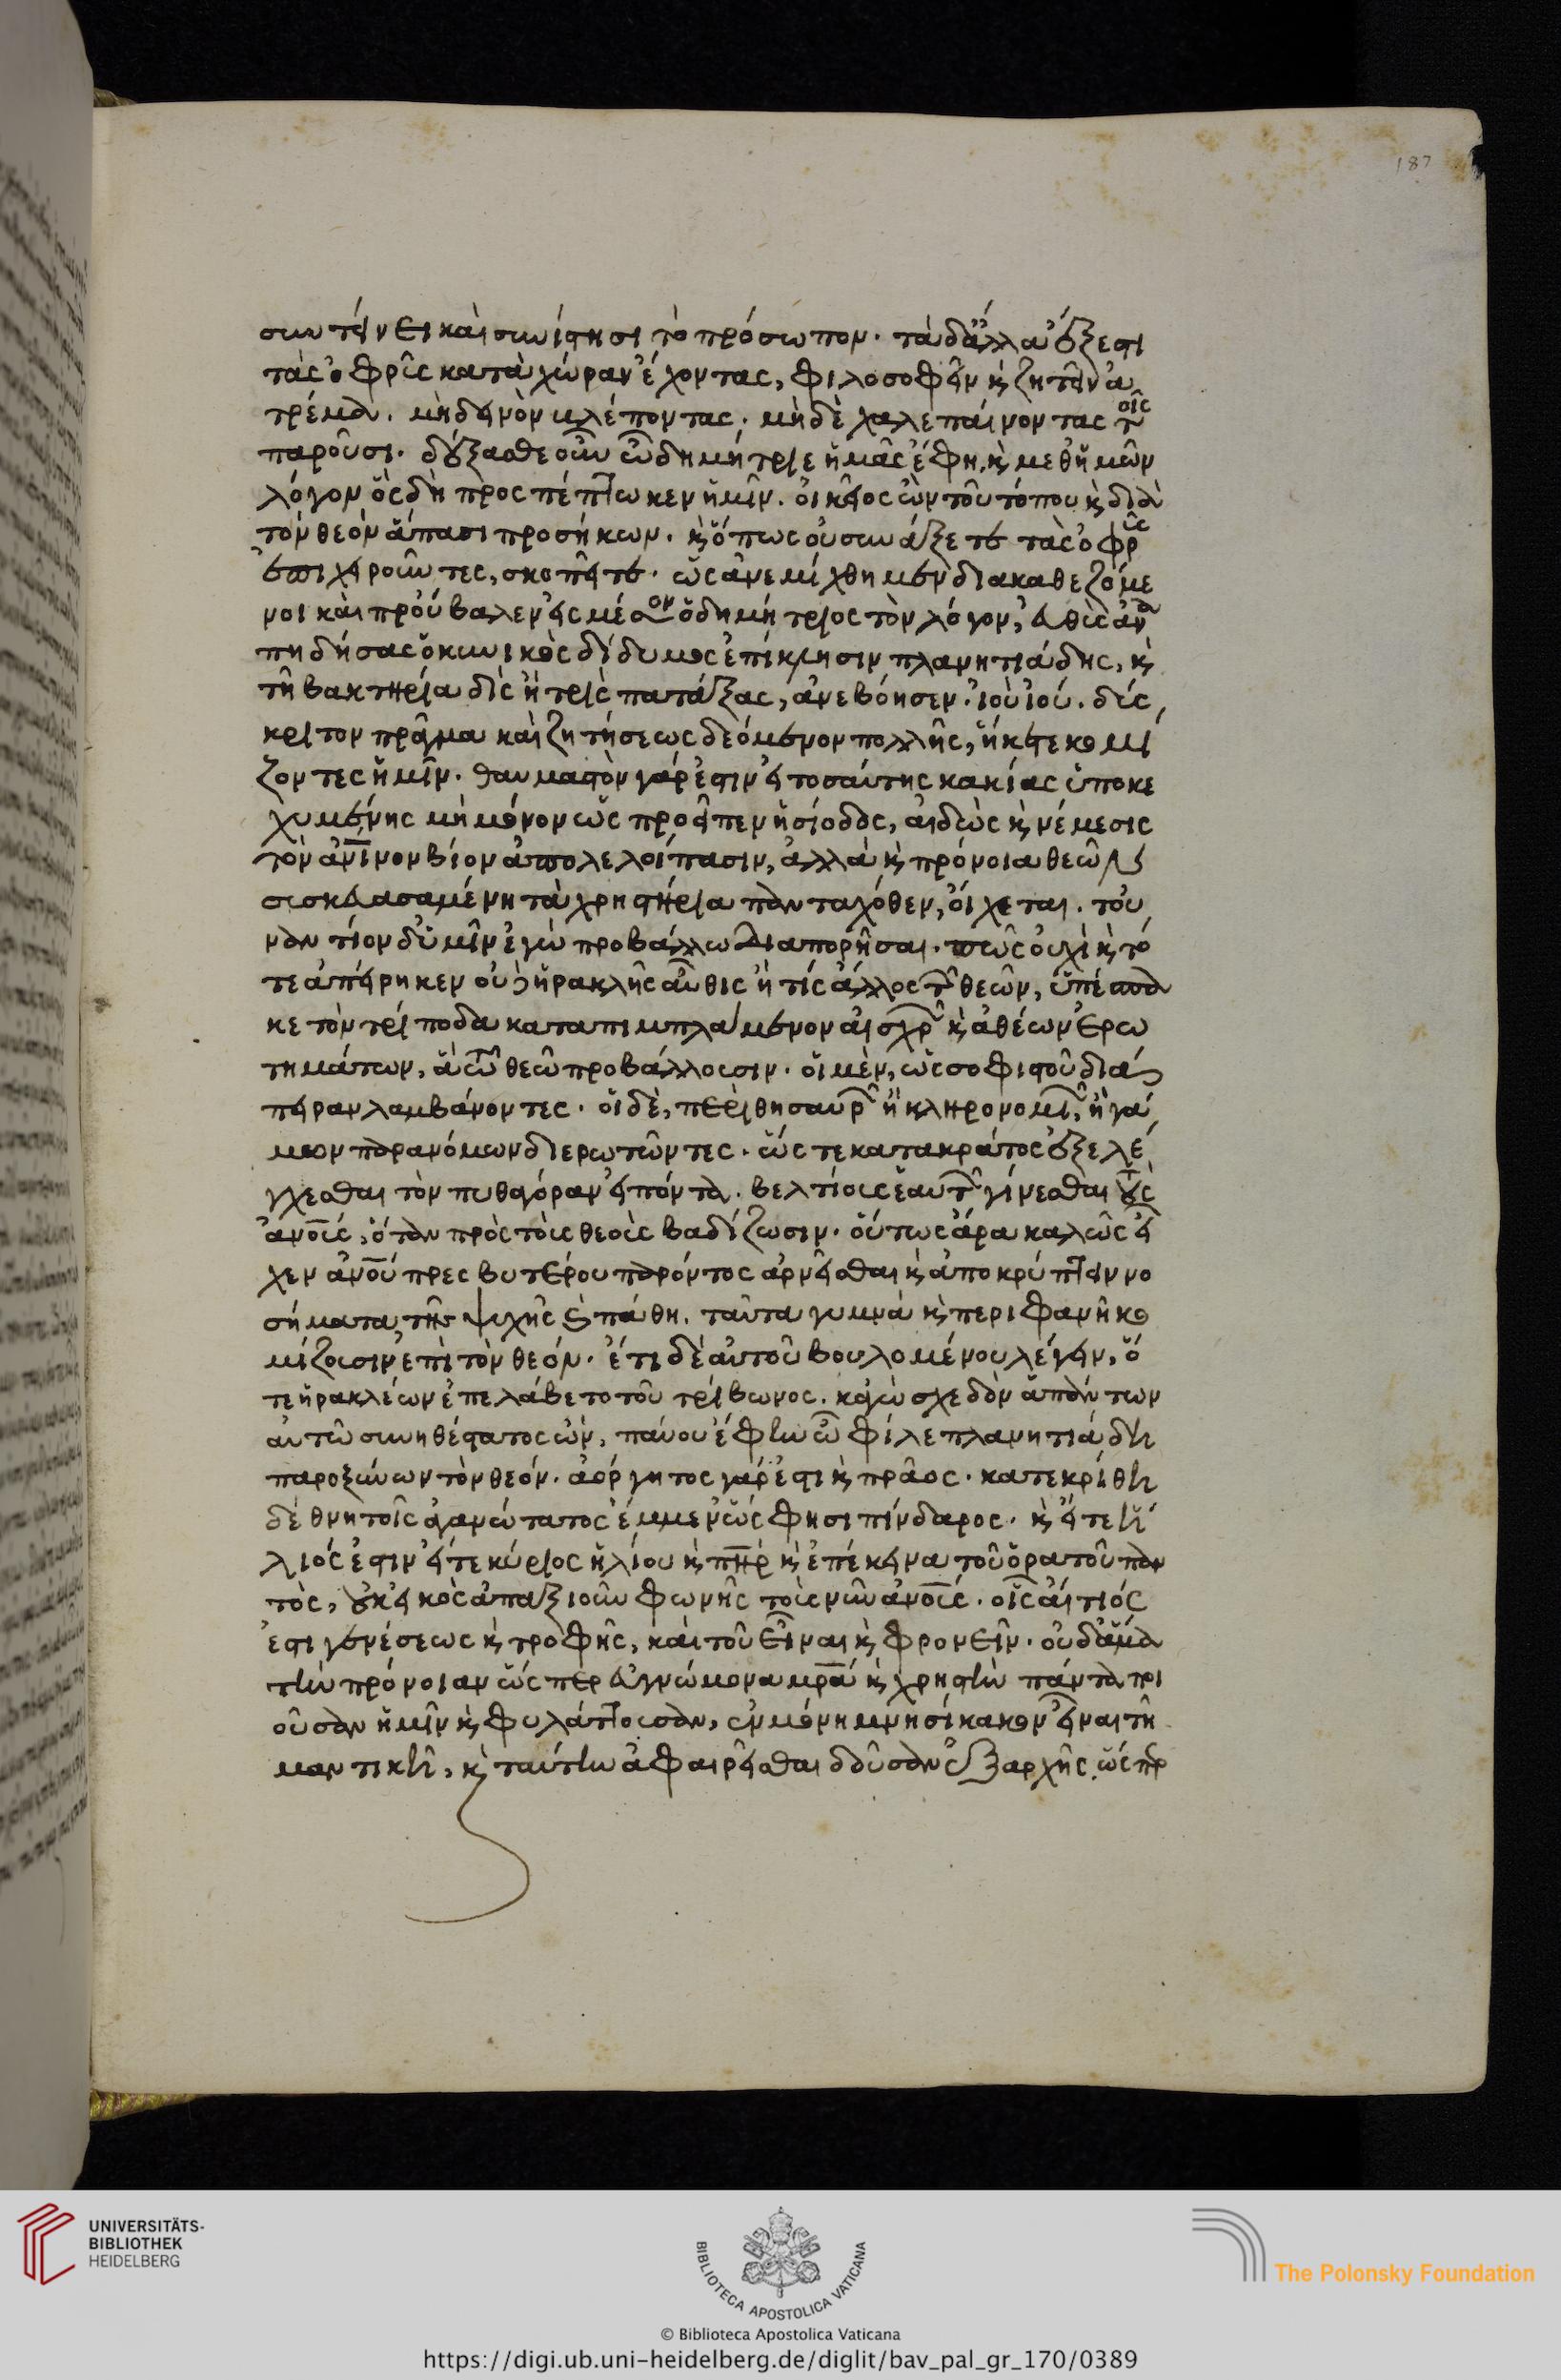 187
συντείνει καὶ συνίστησι τὸ πρόσωπον. τὰ δ' ἄλλα ἔξεστι
τὰς ὀφρῦς κατὰ χώραν ἔχοντας, φιλοσοφεῖν κ̀ ζητεῖν ἀ
τρέμα. μὴ δεινὸν βλέποντας. μὴ δὲ χαλεπαίνοντας τοῖς
παροῦσι. δέξασθε οὖν ὦ δημήτριε ἡμᾶς ἔφη, κ̀ μεθ' ἡμῶν
λόγον ὃς δὴ προσπέπτωκεν ἡμῖν. οἰκεῖος ὢν τοῦ τόπου κ̀ διὰ
τὸν θεὸν ἅπασι προσήκων. κ̀ ὅπως οὐ συνάξετε τὰς ὀφρῦς
ἐπιχειροῦντες, σκοπεῖτε. ὡς ἀνεμίχθημεν διακαθεζόμε
νοι καὶ προὔβαλεν εἰς μέσον ὁ δημήτριος τὸν λόγον, εὐθὺς ἀνα
πηδήσας ὁ κυνικὸς δίδυμος ἐπίκλησιν πλανητιάδης, κ̀
τῇ βακτηρίᾳ δὶς ἢ τρὶς πατάξας, ἀνεβόησεν. ἰοὺ ἰού. δύς
κριτον πρᾶγμα καὶ ζητήσεως δεόμενον πολλῆς, ἥκετε κομί
ζοντες ἡμῖν. θαυμαστὸν γάρ ἐστιν εἰ τοσαύτης κακίας ὑποκε
χυμένης μὴ μόνον ὡς προεῖπεν ἡσίοδος, αἰδὼς κ̀ νέμεσις
τὸν ἀνινον βίον ἀπολελοίπασιν, ἀλλὰ κ̀ πρόνοια θεῶν
συσκευασαμένη τὰ χρηστήρια πανταχόθεν, οἴχεται. του
ναντίον δ' ὑμῖν ἐγὼ προβάλλω διαπορῆσαι. πῶς οὐχὶ κ̀ τό
τε ἀπείρηκεν οὐδ' ἡρακλῆς αὖθις ἤ τίς ἄλλος τῶν θεῶν, ὑπέσπα
κε τὸν τρίποδα καταπιμπλάμενον αἰσχρῶν κ̀ ἀθέων ἐρω
τημάτων, ἃ τῷ θεῷ προβάλλουσιν. οἱ μὲν, ὡς σοφιστοῦ διά
πειραν λαμβάνοντες. οἱ δὲ, περὶ θησαυρῶν ἢ κληρονομιῶν, ἢ γά
μων παρανόμων διερωτῶντες. ὥστε κατακράτος ἐξελέ
γχεσθαι τὸν πυθαγόραν εἰπόντα. βελτίους ἑαυτῶν γίνεσθαι τοὺς
ἀνους, ὅταν πρὸς τοὺς θεοὺς βαδίζωσιν. οὕτως ἄρα καλῶς εἶ
χεν ἀνου πρεσβυτέρου παρόντος ἀρνεῖσθαι κ̀ ἀποκρύπτειν νο
σήματα τῆς ψυχῆς κ̀ πάθη. ταῦτα γυμνὰ κ̀ περιφανῆ κο
μίζουσιν ἐπὶ τὸν θεόν. ἔτι δὲ αὐτοῦ βουλομένου λέγειν, ὅ
τε ἡρακλέων ἐπελάβετο τοῦ τρίβωνος. κἀγὼ σχεδὸν ἁπάντων
αὐτῷ συνηθέστατος ὢν, παύου ἔφην ὦ φίλε πλανητιάδη
παροξύνων τὸν θεόν. ἀόργητος γάρ ἐστι κ̀ πρᾶος. κατεκρίθη
δὲ θνητοῖς ἀγανώτατος ἔμμεν ὥς φησι πίνδαρος. κ̀ εἴτε ἥ
λιός ἐστιν εἴτε κύριος ἡλίου κ̀ πηρ κ̀ ἐπέκεινα τοῦ ὁρατοῦ παν
τὸς, οὐκ εἰκὸς ἀπαξιοῦν φωνῆς τοὺς νῦν ἀνους. οἷς αἴτιός
ἐστι γενέσεως κ̀ τροφῆς, καὶ τοῦ εἶναι κ̀ φρονεῖν. οὐδ' ἅμα
τὴν πρόνοιαν ὥσπερ εὐγνώμονα μρα κ̀ χρηστὴν πάντα ποι
οῦσαν ἡμῖν κ̀ φυλάττουσαν, ἐν μόνῃ μνησίκακον εἶναι τῇ
μαντικῇ, κ̀ ταύτην ἀφαιρεῖσθαι δοῦσαν ἐξ αρχῆς ὥσπερ
UNIVERSITÄTS-
BIBLIOTHEK
HEIDELBERG
BIBLIOTECA APOSTOLICA VATICANA
The Polonsky Foundation
© Biblioteca Apostolica Vaticana
https://digi.ub.uni-heidelberg.de/diglit/bav_pal_gr_170/0389